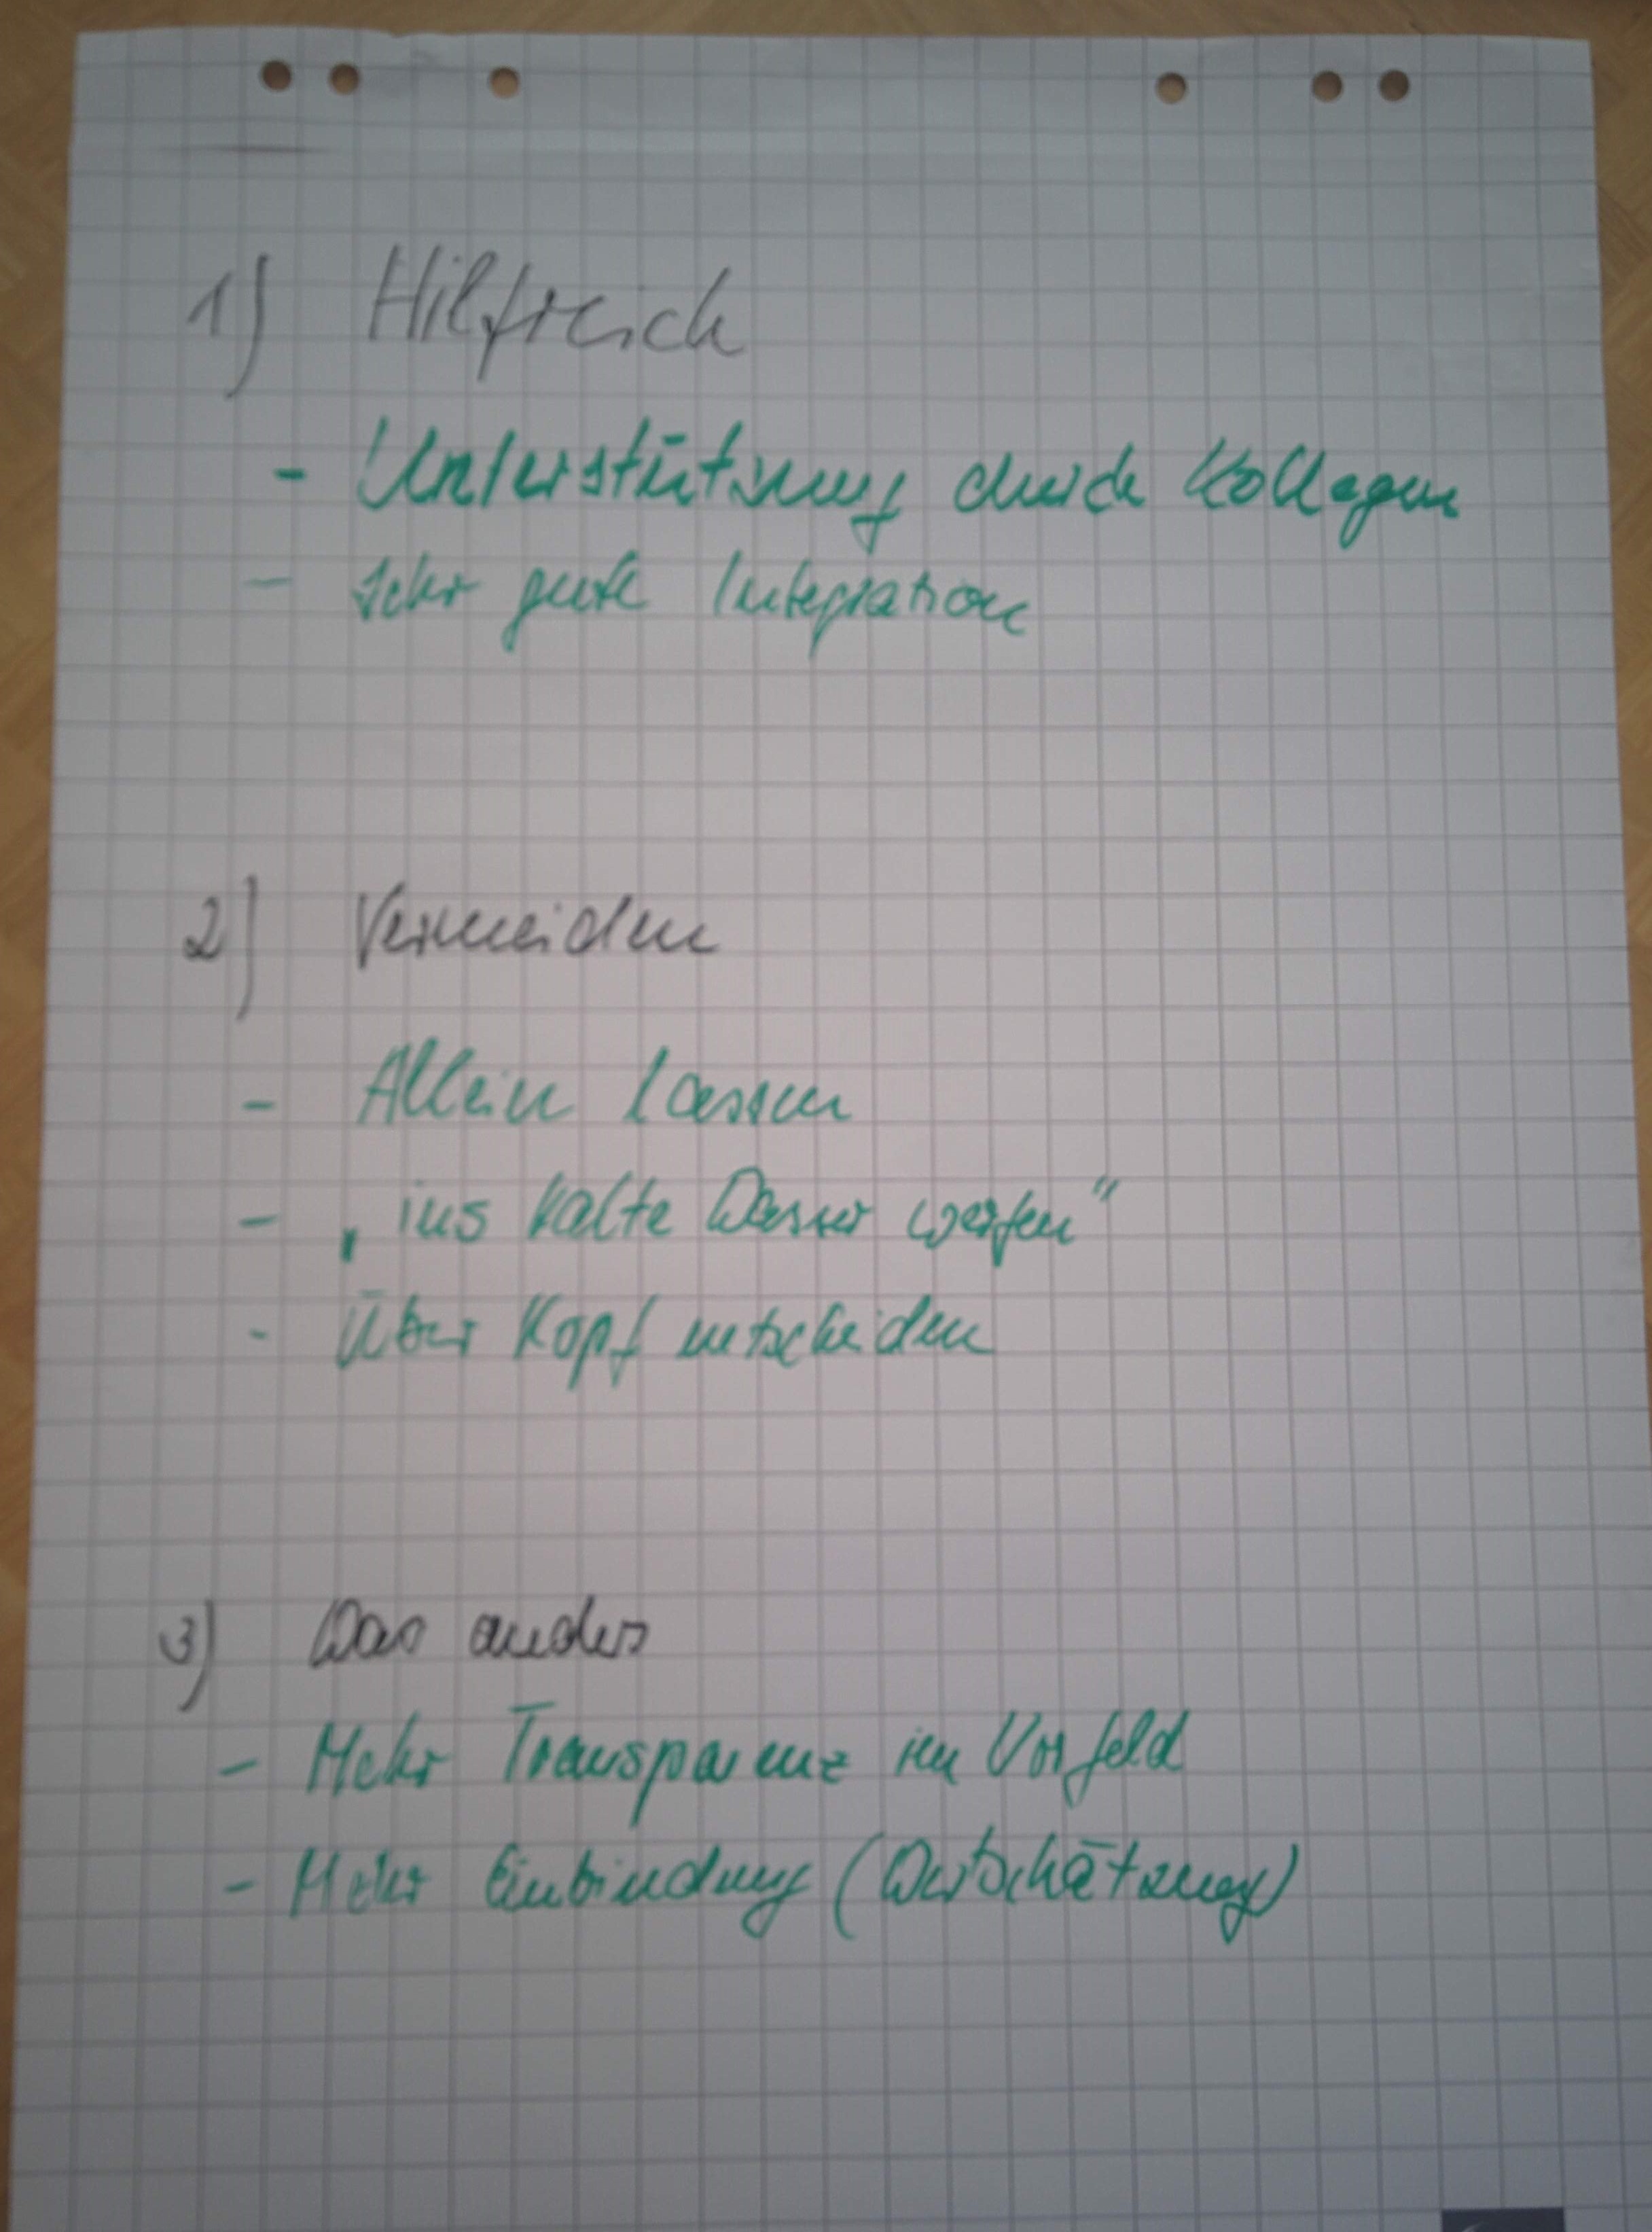 1) Hilfreich
- Unterstützung durch Kollegen
- Sehr gute Integration
2) Vermeiden
- Allein lassen
- „ins kalte Wasser werfen“
- Über Kopf entscheiden
3) Was anders
- Mehr Transparenz im Vorfeld
- Mehr Einbindung (Wertschätzung)